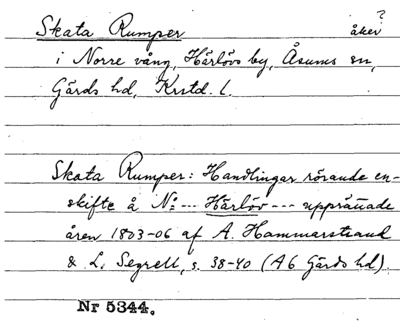 Skata Rumper åker?
i Norre vång, Härlövs by, Åsums sn,
Gärds hd, Krstd. l.
Skata Rumper: Handlingar rörande en-
skifte å No --- Härlöv --- upprättade
åren 1803-06 af A. Hammarstrand
& L. Segrell, s. 38-40 (A6 Gärds hd).
Nr 5344.